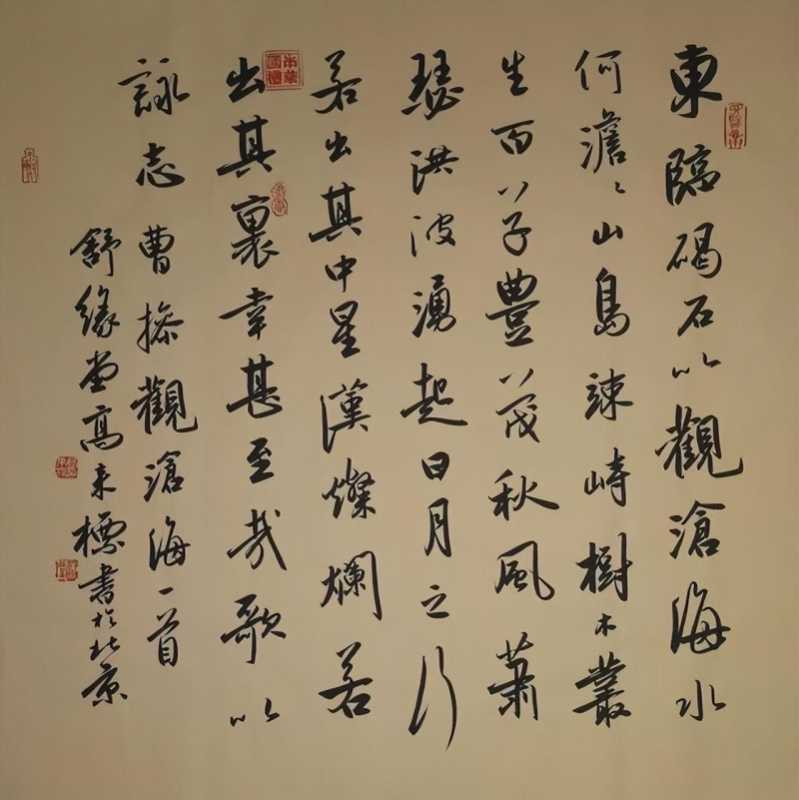 東臨碣石以觀滄海水
何澹〻山島竦峙樹木叢
生百草豐茂秋風蕭
瑟洪波湧起日月之行
若出其中星漢燦爛若
出其裏幸甚至哉歌以
詠志曹操觀滄海一首
舒緣堂高来標書於北京